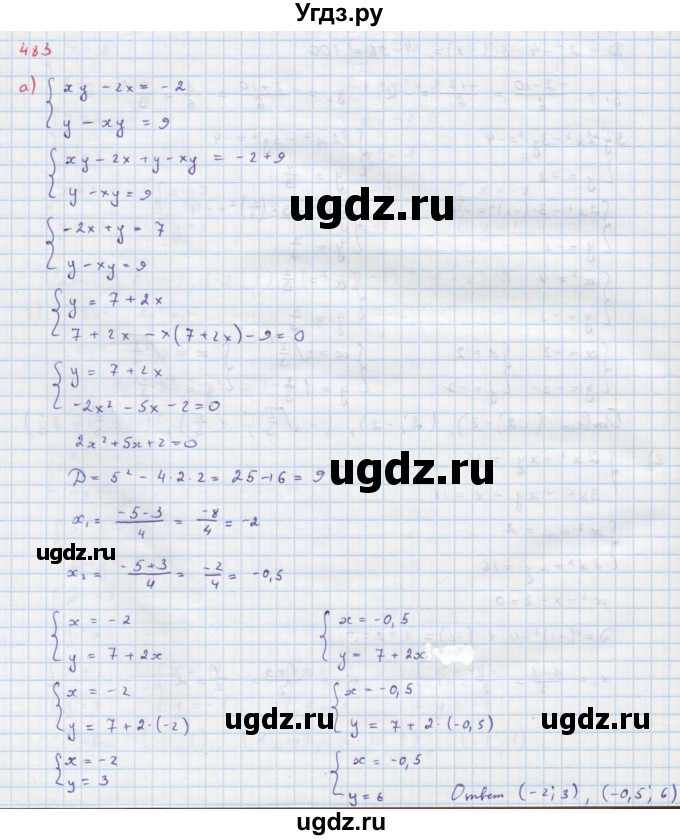 Угдз.ру
483
а) { xy - 2x = -2
y - xy = 9
{ xy - 2x + y - xy = -2 + 9
y - xy = 9
ugdz.ru
{ -2x + y = 7
y - xy = 9
{ y = 7 + 2x
7 + 2x - x(7 + 2x) - 9 = 0
ugdz.ru
{ y = 7 + 2x
-2x² - 5x - 2 = 0
2x² + 5x + 2 = 0
D = 5² - 4·2·2 = 25 - 16 = 9
ugdz.ru
x₁ = (-5-3)/4 = -8/4 = -2
ugdz.ru
x₂ = (-5+3)/4 = -2/4 = -0,5
{ x = -2 { x = -0,5
y = 7 + 2x y = 7 + 2x
{ x = -2 { x = -0,5
y = 7 + 2·(-2) y = 7 + 2·(-0,5)
ugdz.ru ugdz.ru
{ x = -2 { x = -0,5
y = 3 y = 6 Ответ (-2; 3), (-0,5; 6)
ugdz.ru